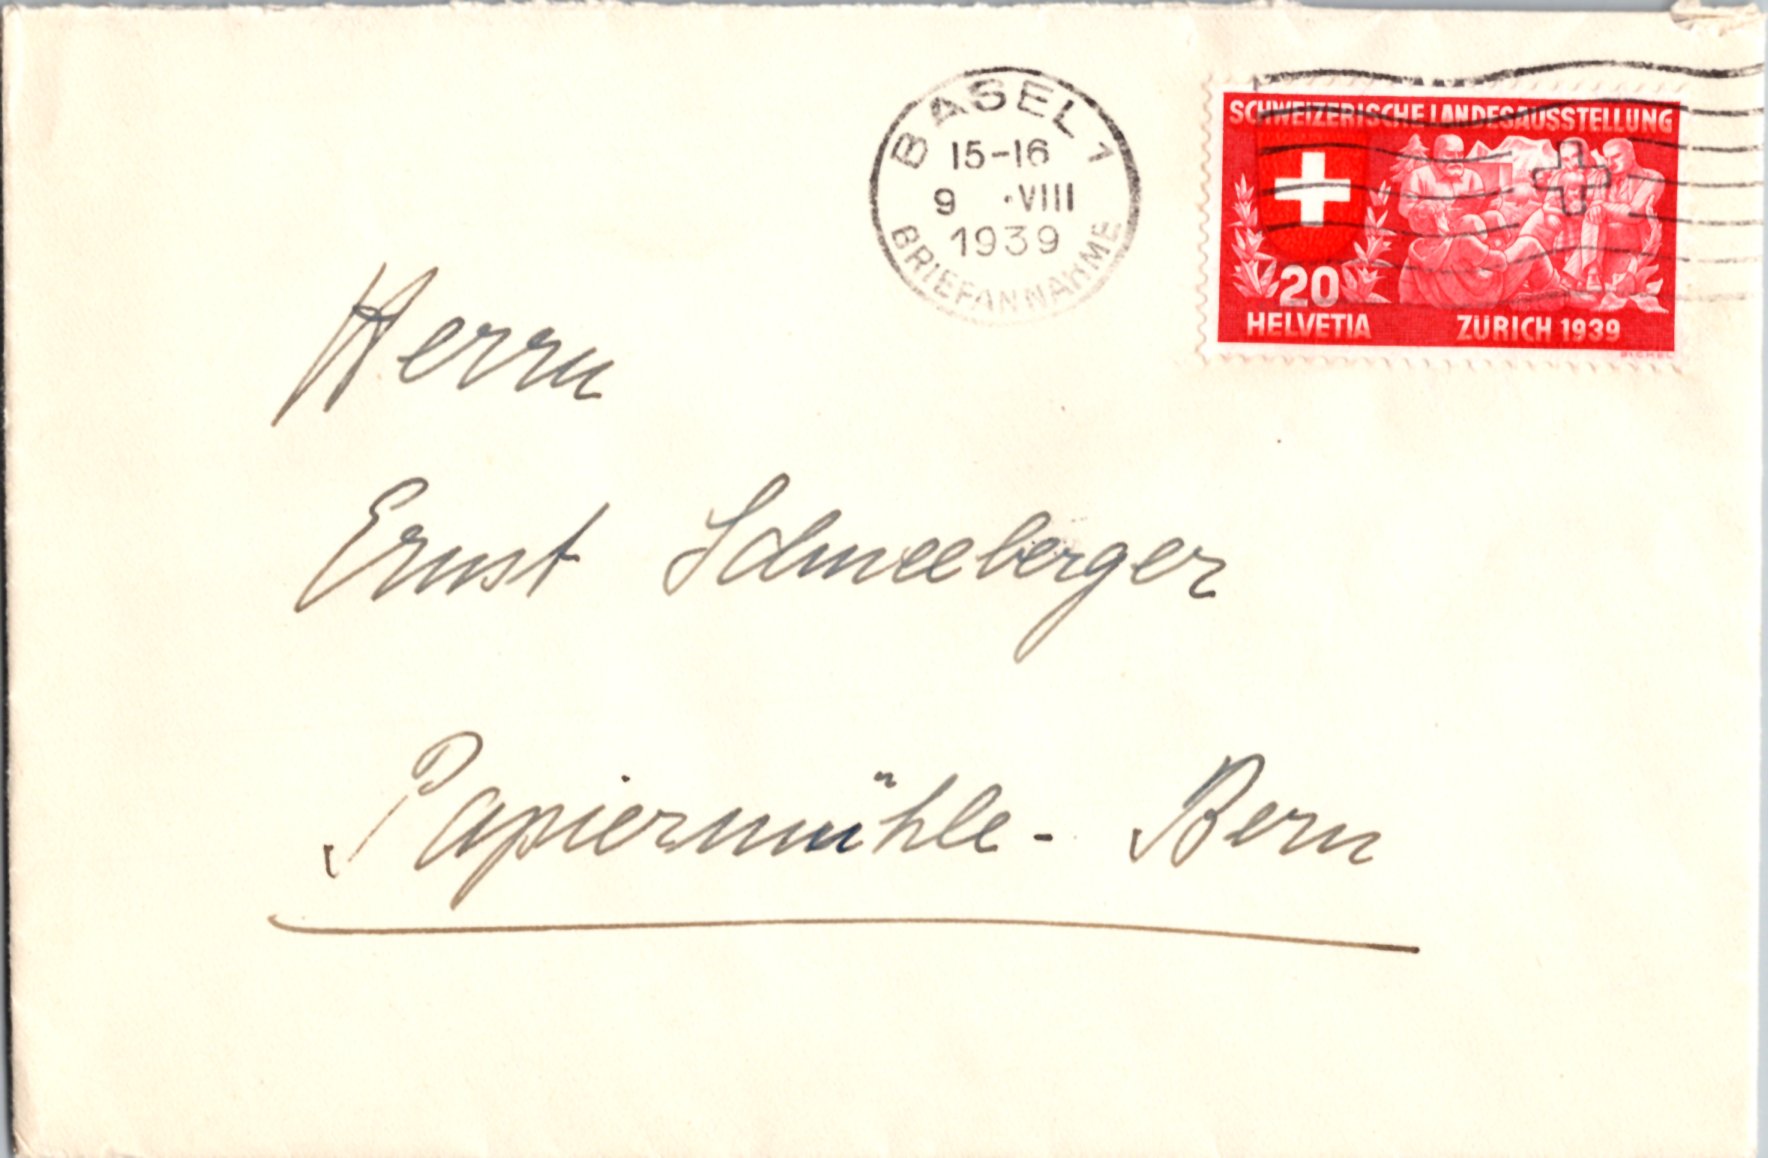 BASEL 1
15-16
9 ·VIII
1939
BRIEFANNAHME
SCHWEIZERISCHE LANDESAUSSTELLUNG
20
HELVETIA ZÜRICH 1939
BICKEL
Herrn
Ernst Schneeberger
Papiermühle - Bern